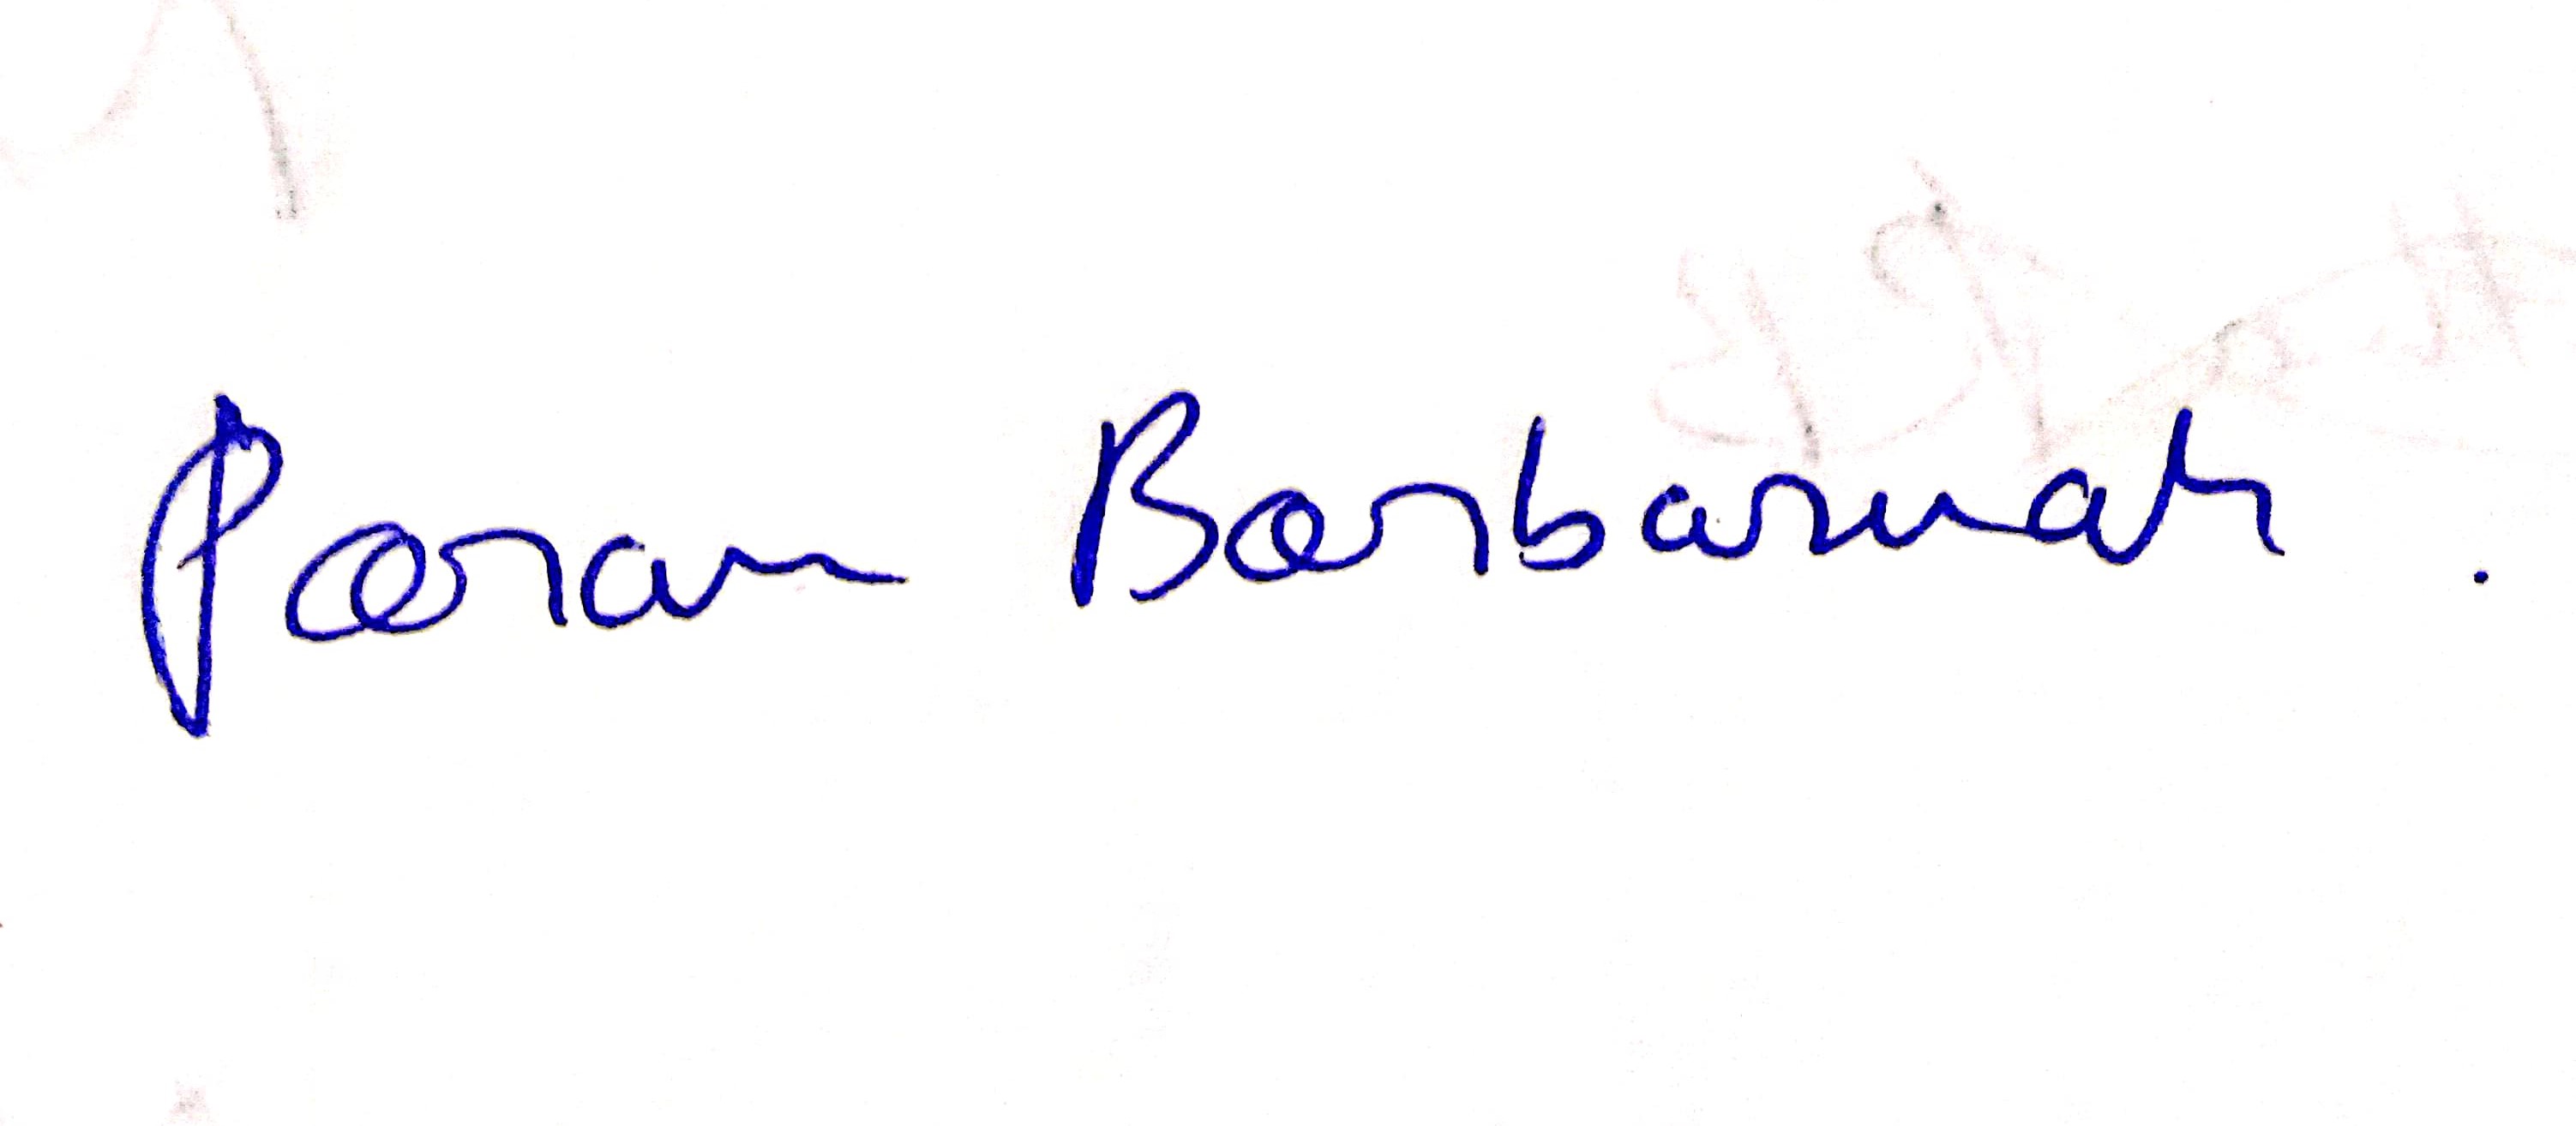 Paran Barbaruah.